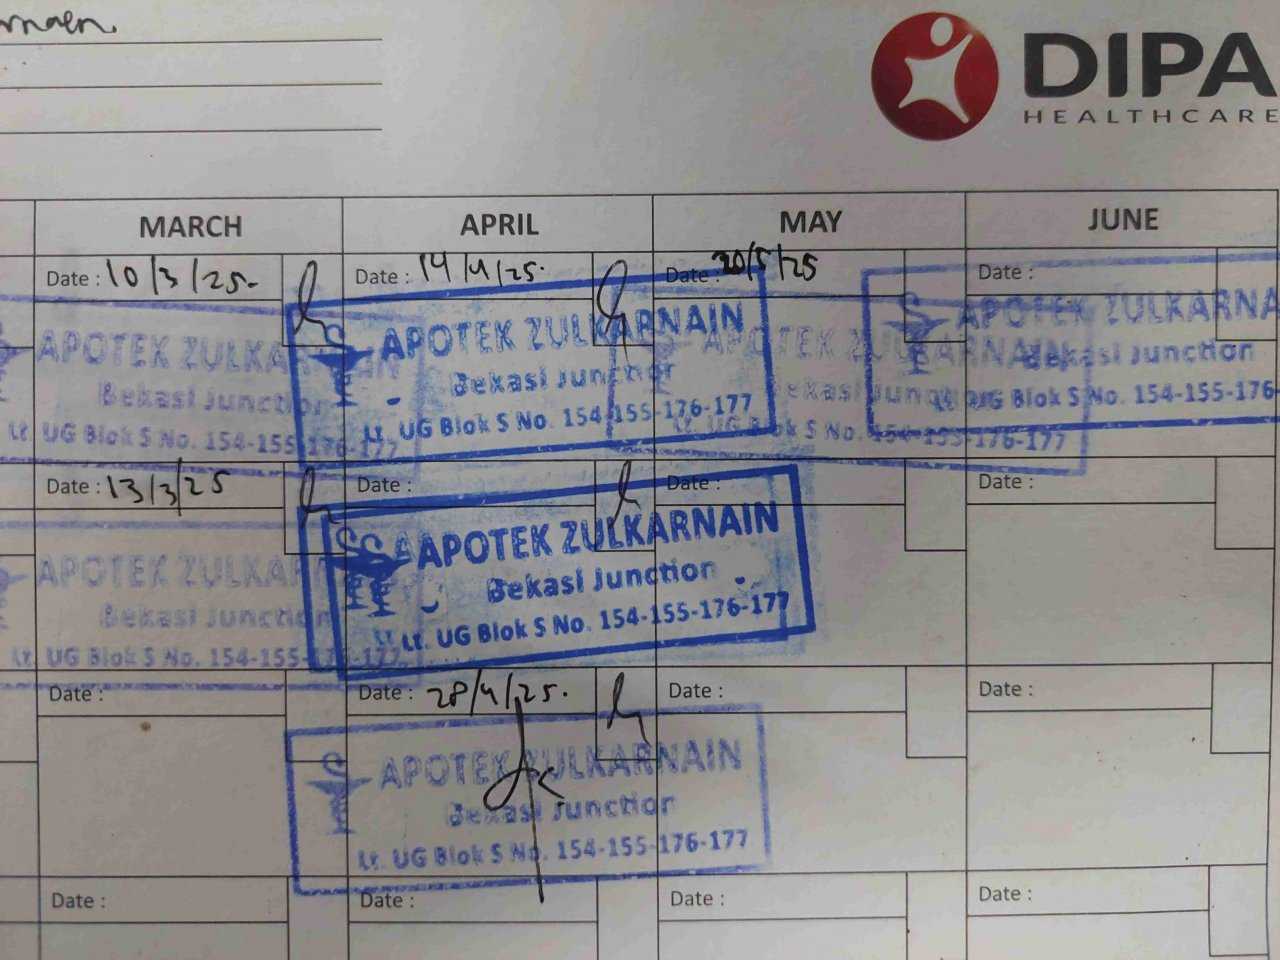 DIPA
HEALTHCARE
MARCH APRIL MAY JUNE
Date : 10/3/25. Date : 14/4/25. Date : 20/5/25 Date :
APOTEK ZULKARNAIN
Bekasi Junction
Lt. UG Blok S No. 154-155-176-177
APOTEK ZULKARNAIN
Bekasi Junction
Lt. UG Blok S No. 154-155-176-177
APOTEK ZULKARNAIN
Bekasi Junction
Lt. UG Blok S No. 154-155-176-177
APOTEK ZULKARNA
Bekasi Junction
UG Blok S No. 154-155-176
Date : 13/3/25 Date : Date : Date :
APOTEK ZULKAR
Bekasi Junction
Lt. UG Blok S No. 154-155-177
APOTEK ZULKARNAIN
Bekasi Junction
Lt. UG Blok S No. 154-155-176-177
Date : Date : 28/4/25. Date : Date :
APOTEK ZULKARNAIN
Bekasi Junction
Lt. UG Blok S No. 154-155-176-177
Date : Date : Date : Date :